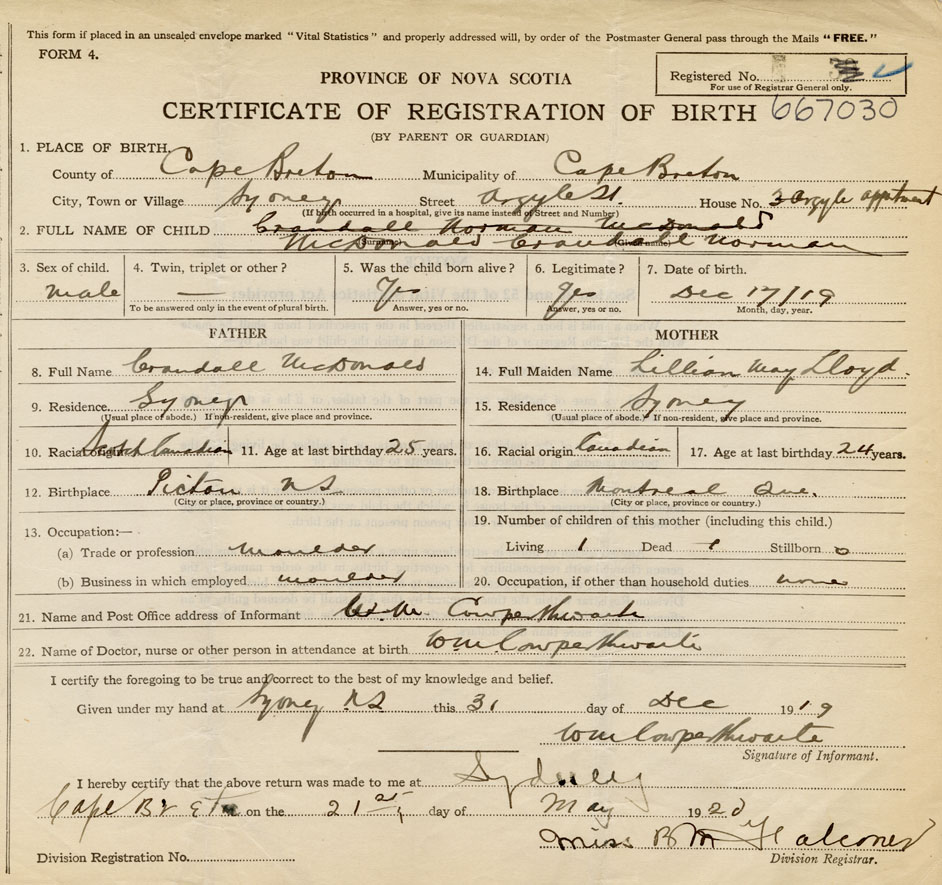 This form if placed in an unsealed envelope marked "Vital Statistics" and properly addressed will, by order of the Postmaster General pass through the Mails "FREE."
FORM 4.
Registered No.
For use of Registrar General only.
PROVINCE OF NOVA SCOTIA
CERTIFICATE OF REGISTRATION OF BIRTH 667030
(BY PARENT OR GUARDIAN)
1. PLACE OF BIRTH.
County of Cape Breton Municipality of Cape Breton
City, Town or Village Sydney Street Argyle St. House No. 3 Argyle appartment
(If birth occurred in a hospital, give its name instead of Street and Number)
2. FULL NAME OF CHILD Crandall Norman McDonald
McDonald Crandall Norman
(Surname) (Given name)
3. Sex of child. 4. Twin, triplet or other? 5. Was the child born alive? 6. Legitimate? 7. Date of birth.
male — Yes yes Dec 17/19
To be answered only in the event of plural birth. Answer, yes or no. Answer, yes or no. Month, day, year.
FATHER MOTHER
8. Full Name Crandall McDonald 14. Full Maiden Name Lillian May Lloyd.
9. Residence. Sydney 15. Residence Sydney
(Usual place of abode.) If non-resident, give place and province. (Usual place of abode.) If non-resident, give place and province.
10. Racial origin Scotch Canadian 11. Age at last birthday 25 years. 16. Racial origin Canadian 17. Age at last birthday 24 years.
12. Birthplace Pictou NS 18. Birthplace Montreal Que.
(City or place, province or country.) (City or place, province or country.)
13. Occupation:— 19. Number of children of this mother (including this child.)
(a) Trade or profession moulder Living 1 Dead 1 Stillborn 0
(b) Business in which employed moulder 20. Occupation, if other than household duties none
21. Name and Post Office address of Informant Cowperthwaite
22. Name of Doctor, nurse or other person in attendance at birth Wm Cowperthwaite
I certify the foregoing to be true and correct to the best of my knowledge and belief.
Given under my hand at Sydney NS this 31 day of Dec 1919
Wm Cowperthwaite
Signature of Informant.
I hereby certify that the above return was made to me at Sydney
Cape Breton on the 21st day of May 1920
Miss B M Falconer
Division Registration No.
Division Registrar.